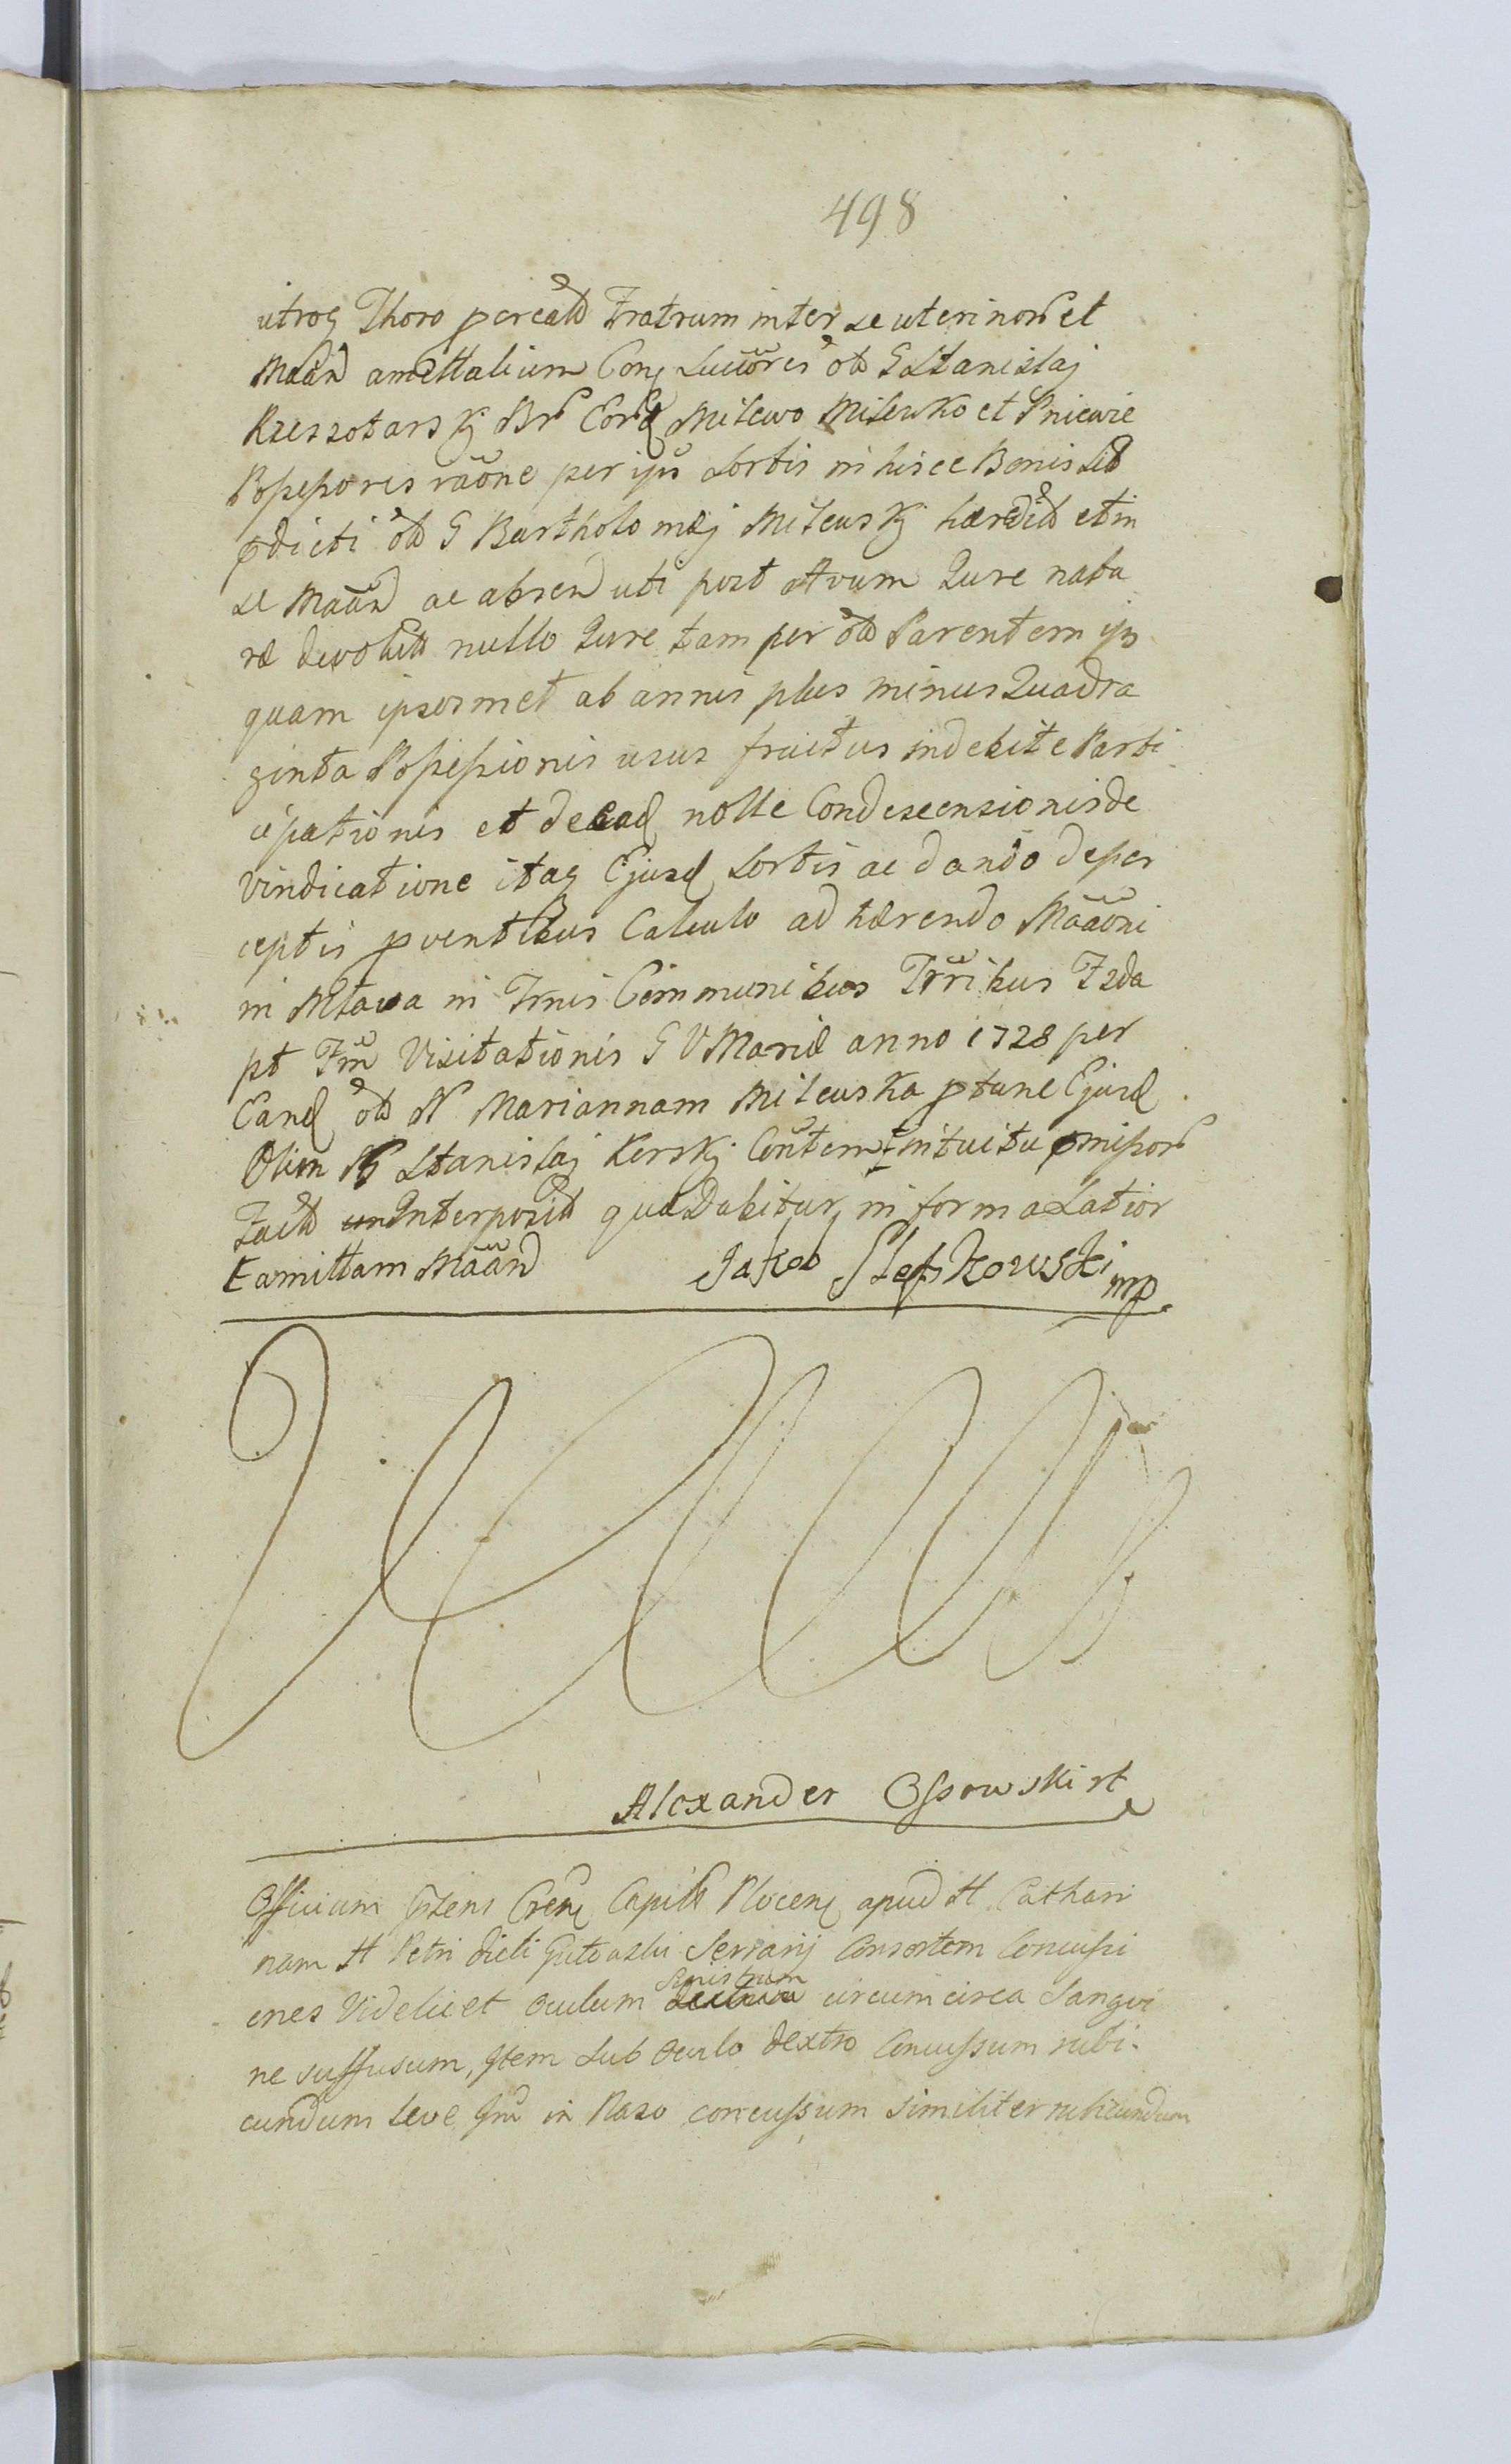 498
utroq Thoro pcreatt Fratrum inter se uterinor et
Maãnd amittalium Conq Succõris ott G Stanislaj
Rzeszotarskj Br Eorq Milewo Milewko et Pniewie
Possessoris rãone per ips Sortis in hisce Bonis
pdicti ott G Bartholomæj Milewskj hæredit et in
se Maãnd ac absend uti post Avum Iure natu
ræ devolutt nullo Iure tam per ott Parentem ips
quam ipsosmet ab annis plus minus Quadra
ginta Possessionis usus fructus indebite Parti
cipationis et de ead nolle Condescensionis de
vindicatione itaq Ejusd Sortis ac dando de per
ceptis pventibus Calculo adhærendo Maãoni
in Mlawa in Trnis Communibus Trribus Frda
pt Fm Visitationis G V Mariæ anno 1728 per
Eand ott N Mariannam Milewska ptunc Ejusd
Olim N Stanislaj Kerskj Contem intuitu pmissor
Factt Interpositt quæ dabitur in forma Latior
Eamittam Maãnd Jakob Sleszkowski mp
Alexander Ossowski rt
Officium pzens Crene Capitt Plocens apud H Cathari
nam H Petri dicti Serrarij Consortem Concussi
ones Videlicet oculum sinistrum circum circa Sangvi
ne suffusum, Item Sub oculo dextro Concussum rubi-
cundum leve Itm in Naso concussum similiter rubicundum